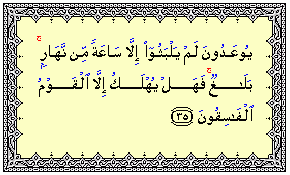 يُوعَدُونَ لَمْ يَلْبَثُوٓا۟ إِلَّا سَاعَةًۭ مِّن نَّهَارٍۭ ۚ
بَلَـٰغٌۭ ۚ فَهَلْ يُهْلَكُ إِلَّا ٱلْقَوْمُ
ٱلْفَـٰسِقُونَ ﴿٣٥﴾